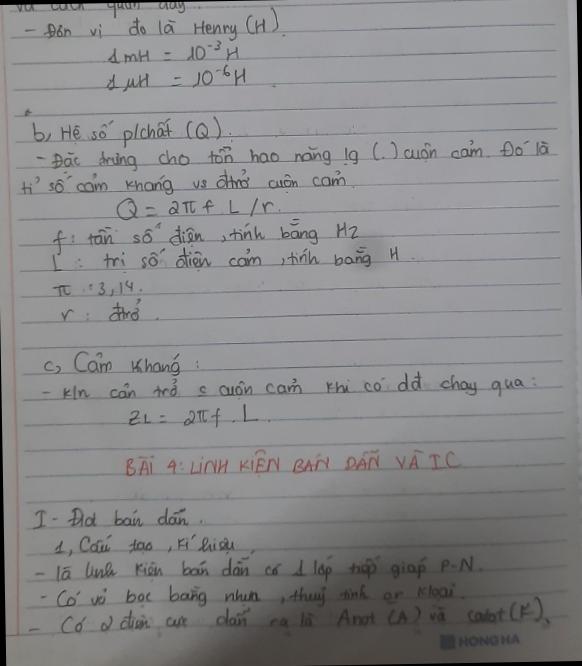 và cách quấn dây.
- Đơn vị đo là Henry (H).
1 mH = 10⁻³ H
1 μH = 10⁻⁶ H
b, Hệ số p/chất (Q).
- Đặc trưng cho tổn hao năng lg (.) cuộn cảm. Đó là
tỉ số cảm kháng vs đtrở cuộn cảm.
Q = 2πf L/r.
f: tần số điện, tính bằng Hz
L: trị số điện cảm, tính bằng H.
π: 3,14.
r: đtrở.
c, Cảm kháng:
- k/n cản trở c cuộn cảm khi có dđ chạy qua:
ZL = 2πf.L.
BÀI 4: LINH KIỆN BÁN DẪN VÀ IC
I- Điot bán dẫn.
1, Cấu tạo, kí hiệu
- là linh kiện bán dẫn có 1 lớp tiếp giáp P-N.
- Có vỏ bọc bằng nhựa, thuỷ tinh or kloại.
- Có 2 điện cực dẫn ra là Anot (A) và catot (K).
HONG HA